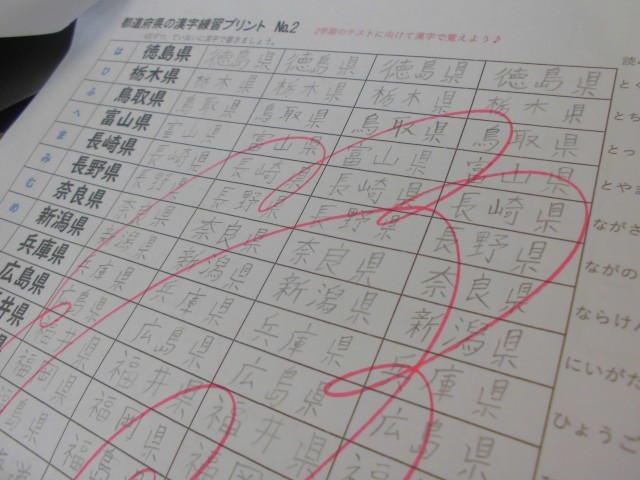 都道府県の漢字練習プリント No.2
2学期のテストに向けて漢字で覚えよう♪
は 徳島県 徳島県 徳島県 徳島県 徳島県
ひ 栃木県 栃木県 栃木県 栃木県 栃木県 とち
ふ 鳥取県 鳥取県 鳥取県 鳥取県 鳥取県 とっ
へ 富山県 富山県 富山県 富山県 富山県 とやま
ま 長崎県 長崎県 長崎県 長崎県 長崎県 ながさ
み 長野県 長野県 長野県 長野県 長野県 ながの
む 奈良県 奈良県 奈良県 奈良県 奈良県 ならけん
め 新潟県 新潟県 新潟県 新潟県 新潟県 にいがた
兵庫県 兵庫県 兵庫県 兵庫県 兵庫県 ひょうご
広島県 広島県 広島県 広島県 広島県
井県 福井県 福井県 福井県
福岡県 福岡県 福岡